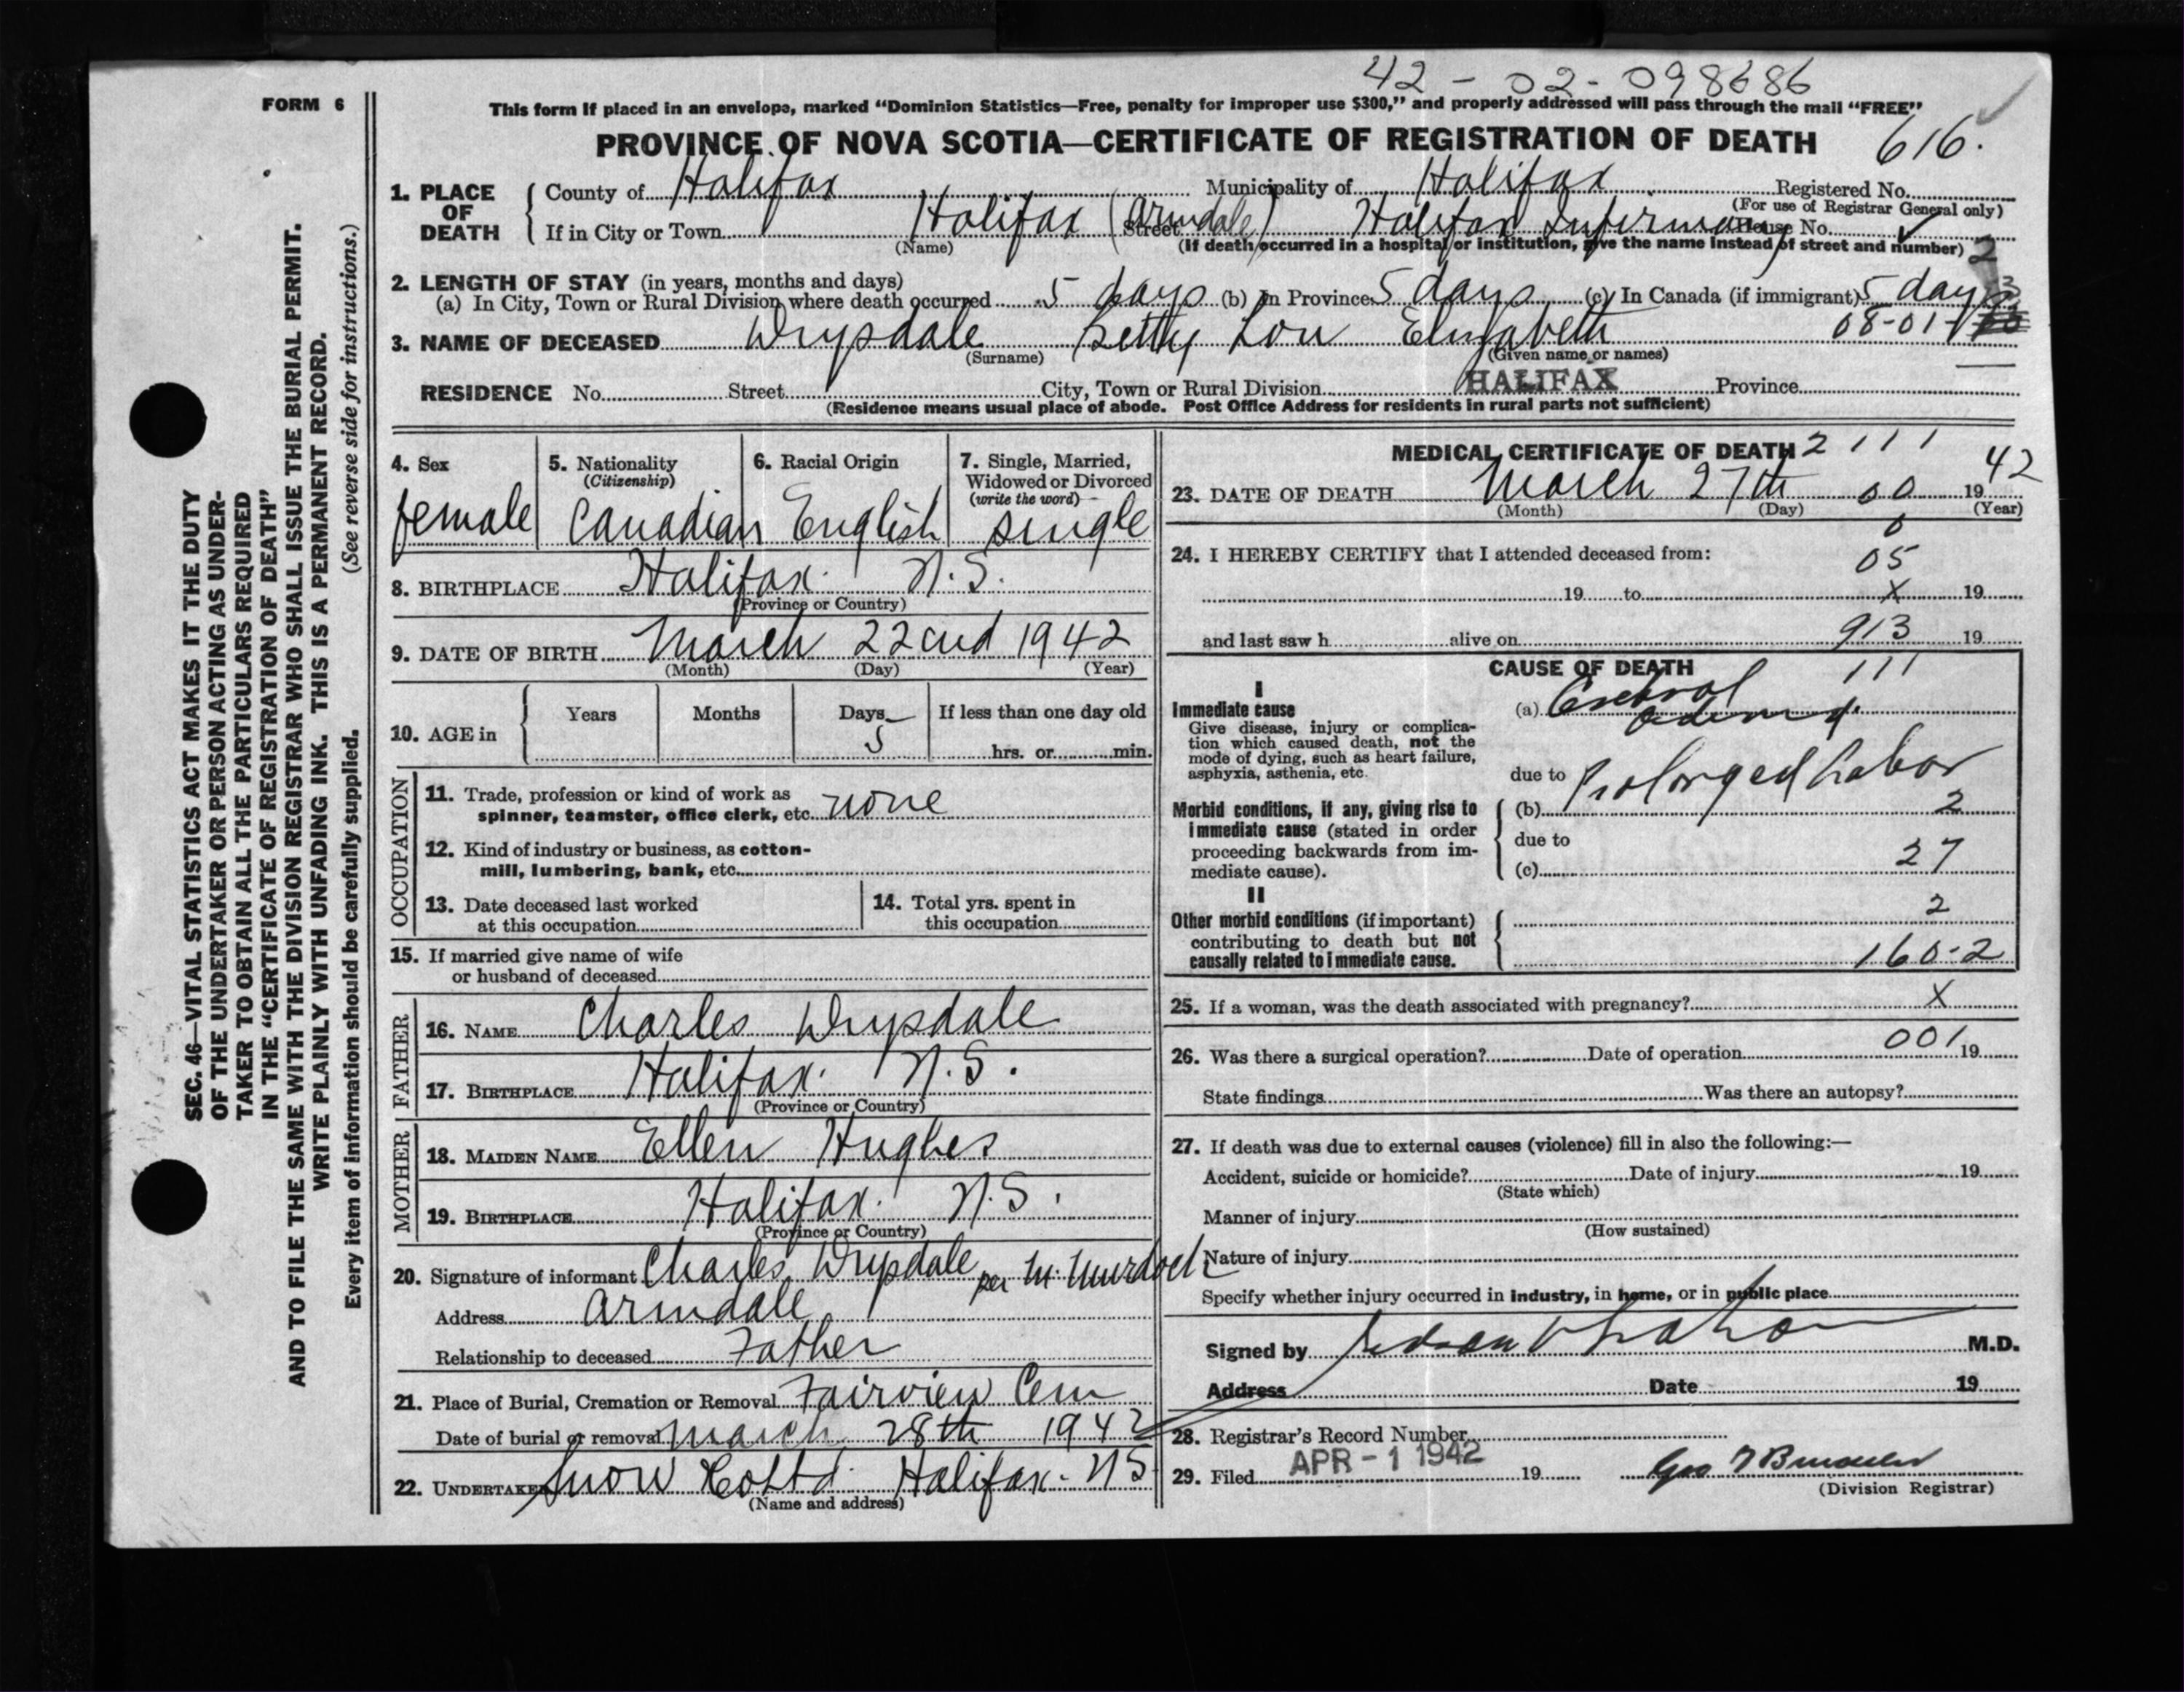 42-02-098686
FORM 6
This form if placed in an envelope, marked “Dominion Statistics—Free, penalty for improper use $300,” and properly addressed will pass through the mail “FREE”
PROVINCE OF NOVA SCOTIA—CERTIFICATE OF REGISTRATION OF DEATH 616.
1. PLACE OF DEATH
County of Halifax Municipality of Halifax Registered No.
(For use of Registrar General only)
If in City or Town Halifax (Armdale) Street Halifax Infirmary House No.
(Name) (If death occurred in a hospital or institution, give the name instead of street and number) 2
2. LENGTH OF STAY (in years, months and days)
(a) In City, Town or Rural Division where death occurred 5 days (b) In Province 5 days (c) In Canada (if immigrant) 5 days
08-01-
3. NAME OF DECEASED Drysdale Betty Lou Elizabeth
(Surname) (Given name or names)
RESIDENCE No. Street City, Town or Rural Division HALIFAX Province
(Residence means usual place of abode. Post Office Address for residents in rural parts not sufficient)
4. Sex
female
5. Nationality
(Citizenship)
Canadian
6. Racial Origin
English
7. Single, Married,
Widowed or Divorced
(write the word)
single
8. BIRTHPLACE Halifax. N.S.
(Province or Country)
9. DATE OF BIRTH March 22cnd 1942
(Month) (Day) (Year)
10. AGE in
Years Months Days If less than one day old
5 hrs. or min.
OCCUPATION
11. Trade, profession or kind of work as
spinner, teamster, office clerk, etc. none
12. Kind of industry or business, as cotton-
mill, lumbering, bank, etc.
13. Date deceased last worked
at this occupation
14. Total yrs. spent in
this occupation
15. If married give name of wife
or husband of deceased
FATHER
16. NAME Charles Drysdale
17. BIRTHPLACE Halifax. N.S.
(Province or Country)
MOTHER
18. MAIDEN NAME Ellen Hughes
19. BIRTHPLACE Halifax. N.S.
(Province or Country)
20. Signature of informant Charles Drysdale per M. Murdoch
Address Armdale
Relationship to deceased Father
21. Place of Burial, Cremation or Removal Fairview Cem
Date of burial or removal March 28th 1942
22. UNDERTAKER Snow Co Ltd. Halifax. NS
(Name and address)
MEDICAL CERTIFICATE OF DEATH 2 1 1 1
23. DATE OF DEATH March 27th 00 1942
(Month) (Day) (Year)
6
24. I HEREBY CERTIFY that I attended deceased from:
05
19 to X 19
and last saw h alive on 913 19
CAUSE OF DEATH
111
I
Immediate cause
Give disease, injury or complica-
tion which caused death, not the
mode of dying, such as heart failure,
asphyxia, asthenia, etc.
(a) Cerebral
edema
due to
Prolonged Labor
Morbid conditions, if any, giving rise to
immediate cause (stated in order
proceeding backwards from im-
mediate cause).
(b) 2
due to
(c) 27
II
Other morbid conditions (if important)
contributing to death but not
causally related to immediate cause.
2
160-2
25. If a woman, was the death associated with pregnancy? X
26. Was there a surgical operation? Date of operation 001 19
State findings Was there an autopsy?
27. If death was due to external causes (violence) fill in also the following:—
Accident, suicide or homicide? Date of injury 19
(State which)
Manner of injury
(How sustained)
Nature of injury
Specify whether injury occurred in industry, in home, or in public place
Signed by M.D.
Address Date 19
28. Registrar's Record Number
29. Filed APR - 1 1942 19
(Division Registrar)
SEC. 46—VITAL STATISTICS ACT MAKES IT THE DUTY
OF THE UNDERTAKER OR PERSON ACTING AS UNDER-
TAKER TO OBTAIN ALL THE PARTICULARS REQUIRED
IN THE “CERTIFICATE OF REGISTRATION OF DEATH”
AND TO FILE THE SAME WITH THE DIVISION REGISTRAR WHO SHALL ISSUE THE BURIAL PERMIT.
WRITE PLAINLY WITH UNFADING INK. THIS IS A PERMANENT RECORD.
Every item of information should be carefully supplied. (See reverse side for instructions.)